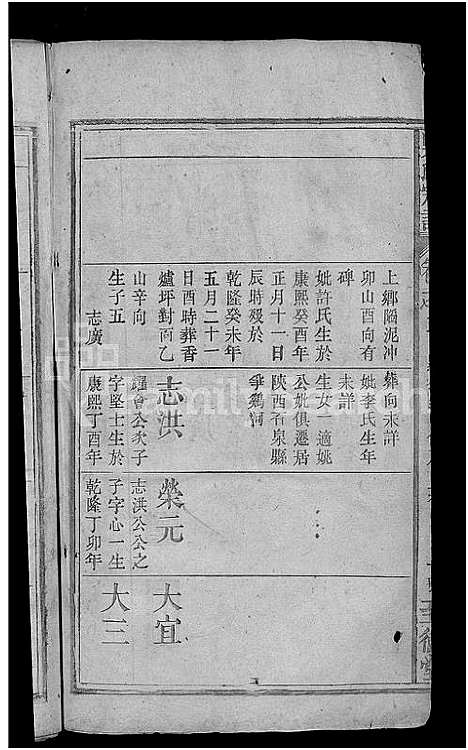 上鄉隔泥冲
卯山酉向有
碑
妣許氏生於
康熙癸酉年
正月十一日
辰時殁於
乾隆癸未年
五月二十一
日酉時葬香
爐坪對面乙
山辛向
生子五
志廣
葬向未詳
妣李氏生年
未詳
生女 適姚
公妣俱遷居
陝西省泉縣
爭鷄洞
志洪
躍會公次子
字堅士生於
康熙丁酉年
榮元
志洪公公之
子字心一生
乾隆丁卯年
大宜
大三